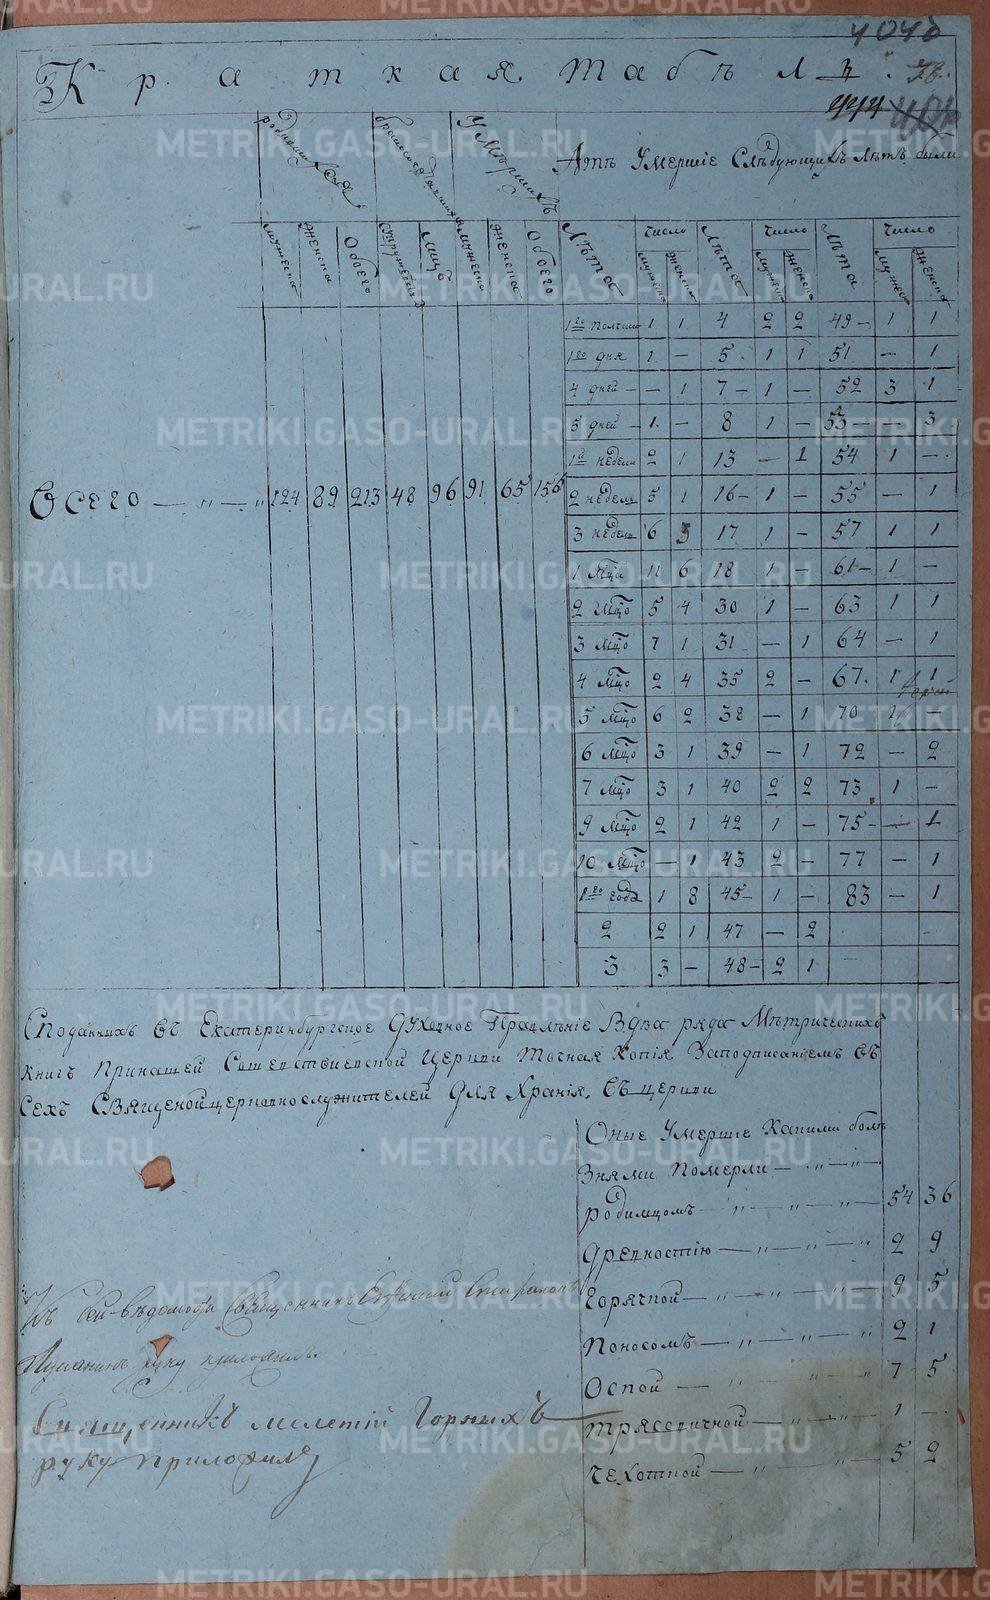 404об
Краткая табѣль
родившихся
бракосочетавшихся
Умершихъ
Аще Умершіе Слѣдующихъ Лѣтъ были
мужеска женска Обоего Супружествъ Лицъ мужеска женска Обоего Лѣта число Лѣта число Лѣта число
мужеска женска мужеска женска мужеска женска
1 1 4 2 2 49 1 1
1го дня 1 — 5 1 1 51 — 1
4 дней — 1 7 1 — 52 3 1
5 дней 1 — 8 1 — 53 — 3
1й недели 2 1 13 — 1 54 1 —
Всего 124 89 213 48 96 91 65 156
2 недель 5 1 16 1 — 55 — 1
3 недель 6 3 17 1 — 57 1 1
1 мца 11 6 18 1 — 61 1 —
2 мцо 5 4 30 1 — 63 1 1
3 мцо 7 1 31 — 1 64 — 1
4 мцо 2 4 35 2 — 67 1 1
5 мцо 6 2 38 — 1 70 1 —
6 мцо 3 1 39 — 1 72 — 2
7 мцо 3 1 40 2 2 73 1 —
9 мцо 2 1 42 1 — 75 — 1
10 мцо — 1 43 2 — 77 — 1
1го года 1 8 45 1 — 83 — 1
2 2 1 47 — 2
3 3 — 48 2 1
Споданныхъ въ Екатеринбургское Духовное Правленіе Вдва ряда Мѣтрическихъ
книгъ Принашей Сошествиевской Церкви точная копія Заподписаніемъ въ
сехъ Священойцерковнослужителей для Храніл. Въ церкви
Оные Умершіе Какими болѣ
Знями Померли
родимцомъ 54 36
Древностію 2 9
Горячкой 9 5
Поносомъ 2 1
Оспой 7 5
трясвичной 1 —
Чехоткой 5 2
Къ сей вѣдомости Священникъ
руку приложилъ.
Священникъ мелетій Горныхъ
руку приложилъ
METRIKI.GASO-URAL.RU